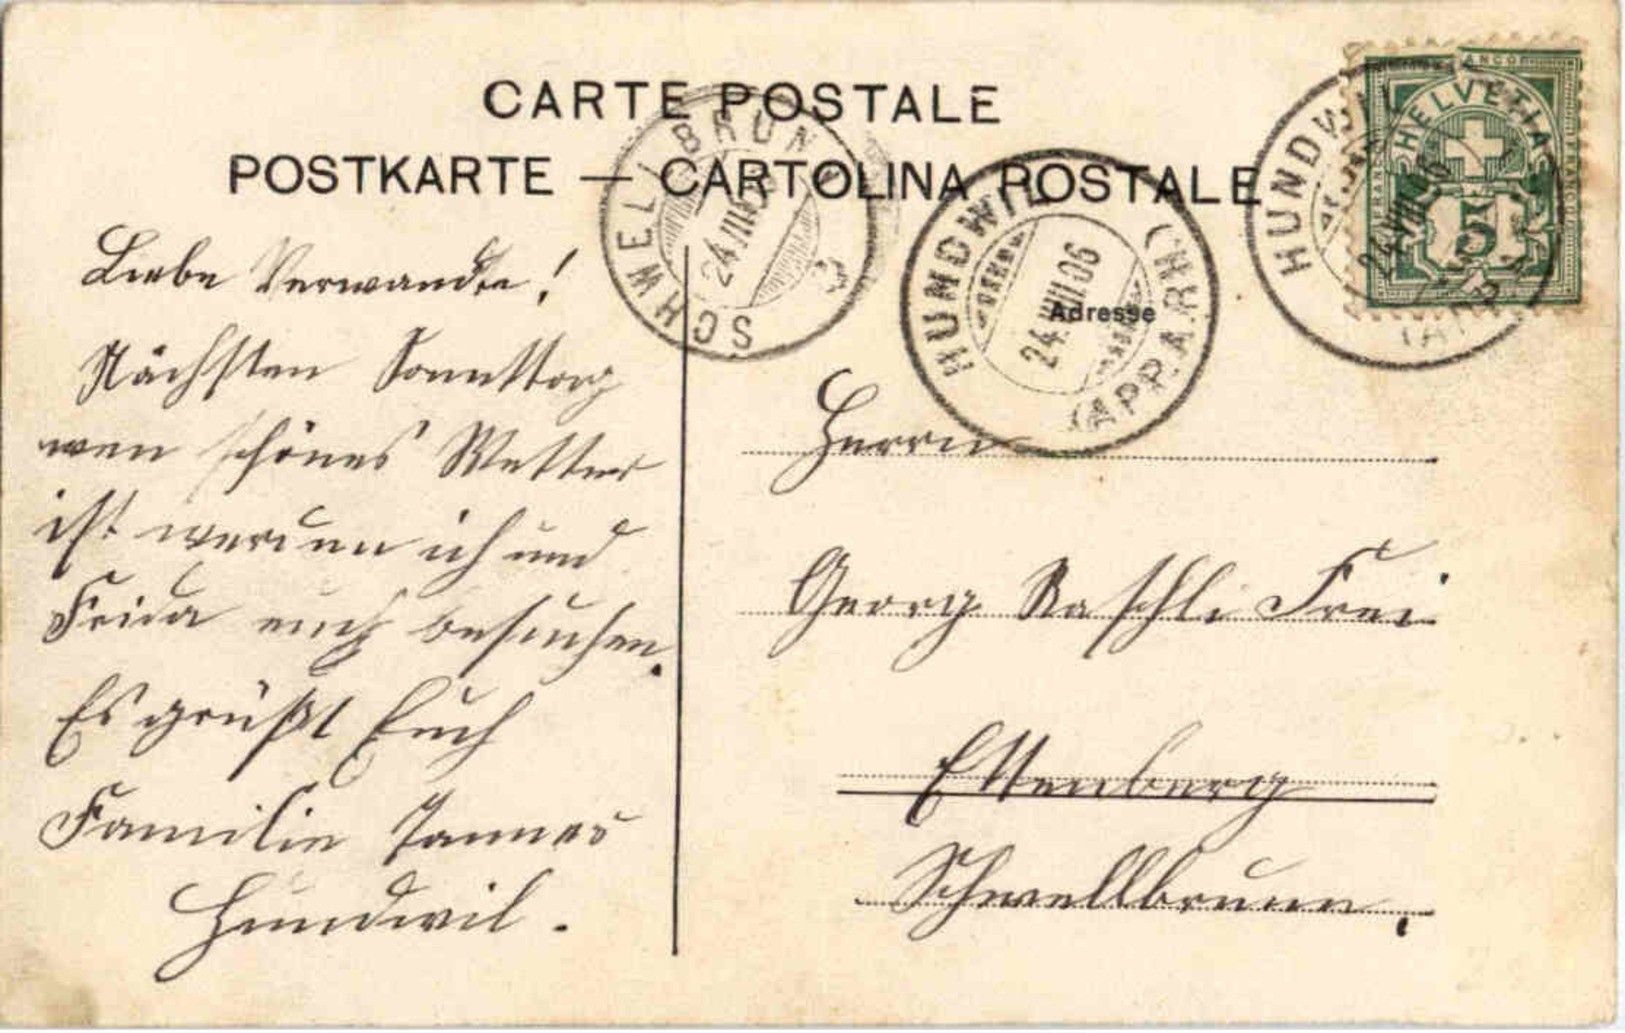 CARTE POSTALE
POSTKARTE — CARTOLINA POSTALE
SCHWELLBRUNN
24.VIII.06
HUNDWIL
24.VIII.06
(APP.A.RH.)
HUNDWIL
24.VIII.06
(APP.
FRANCO
HELVETIA
5
Adresse
Liebe Verwandte!
Nächsten Sonnttag
wen schönes Wetter
ist werden ich und
Frida euch besuchen.
Es grüßt Euch
Familie Tanner
Hundwil.
Herrn
Georg Raschli Frei
Ettenberg
Schwellbrunn.